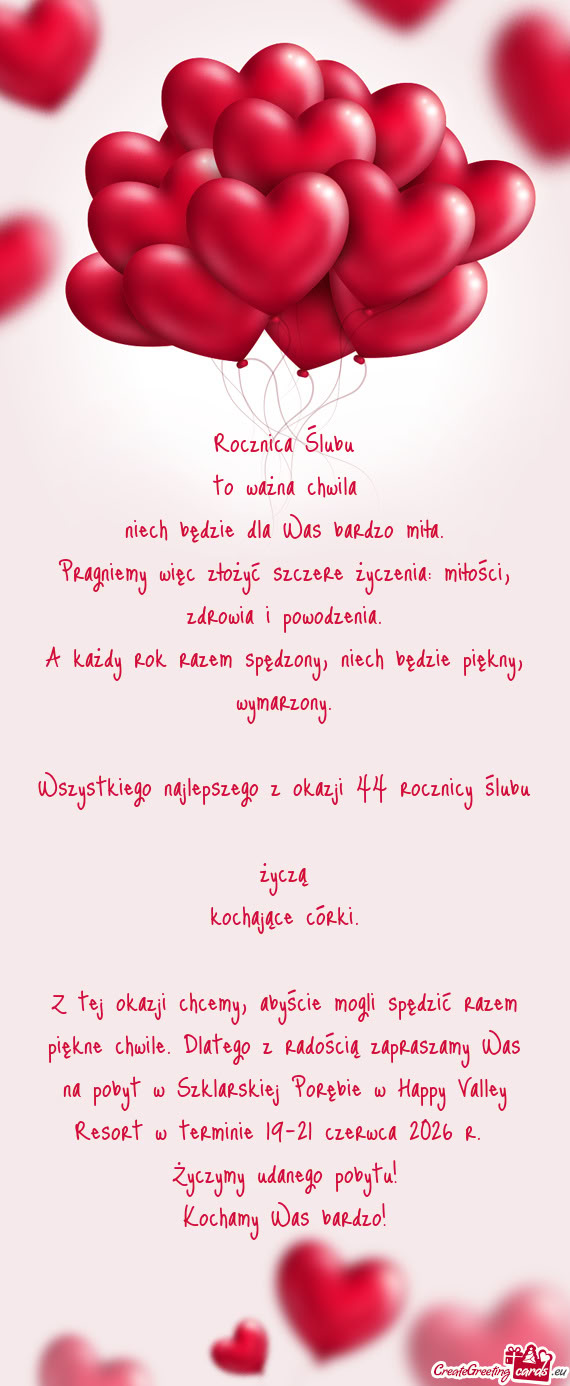 Rocznica Ślubu
to ważna chwila
niech będzie dla Was bardzo miła.
Pragniemy więc złożyć szczere życzenia: miłości,
zdrowia i powodzenia.
A każdy rok razem spędzony, niech będzie piękny,
wymarzony.
Wszystkiego najlepszego z okazji 44 rocznicy ślubu
życzą
kochające córki.
Z tej okazji chcemy, abyście mogli spędzić razem
piękne chwile. Dlatego z radością zapraszamy Was
na pobyt w Szklarskiej Porębie w Happy Valley
Resort w terminie 19-21 czerwca 2026 r.
Życzymy udanego pobytu!
Kochamy Was bardzo!
CreateGreetingcards.eu